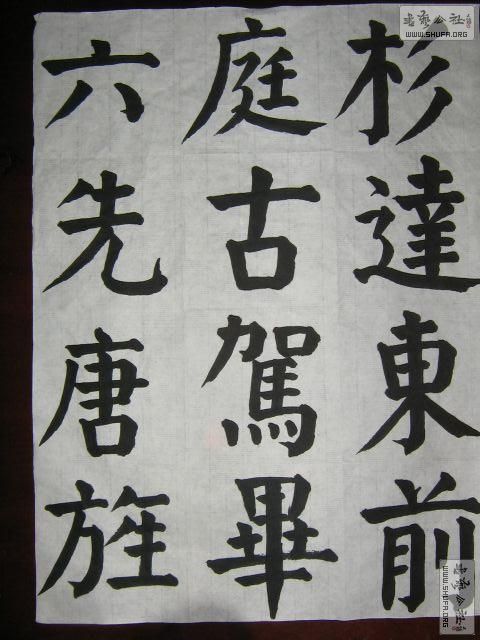 杉達東前
庭古駕畢
六先唐旌
書藝公社
WWW.SHUFA.ORG
書藝公社
WWW.SHUFA.ORG